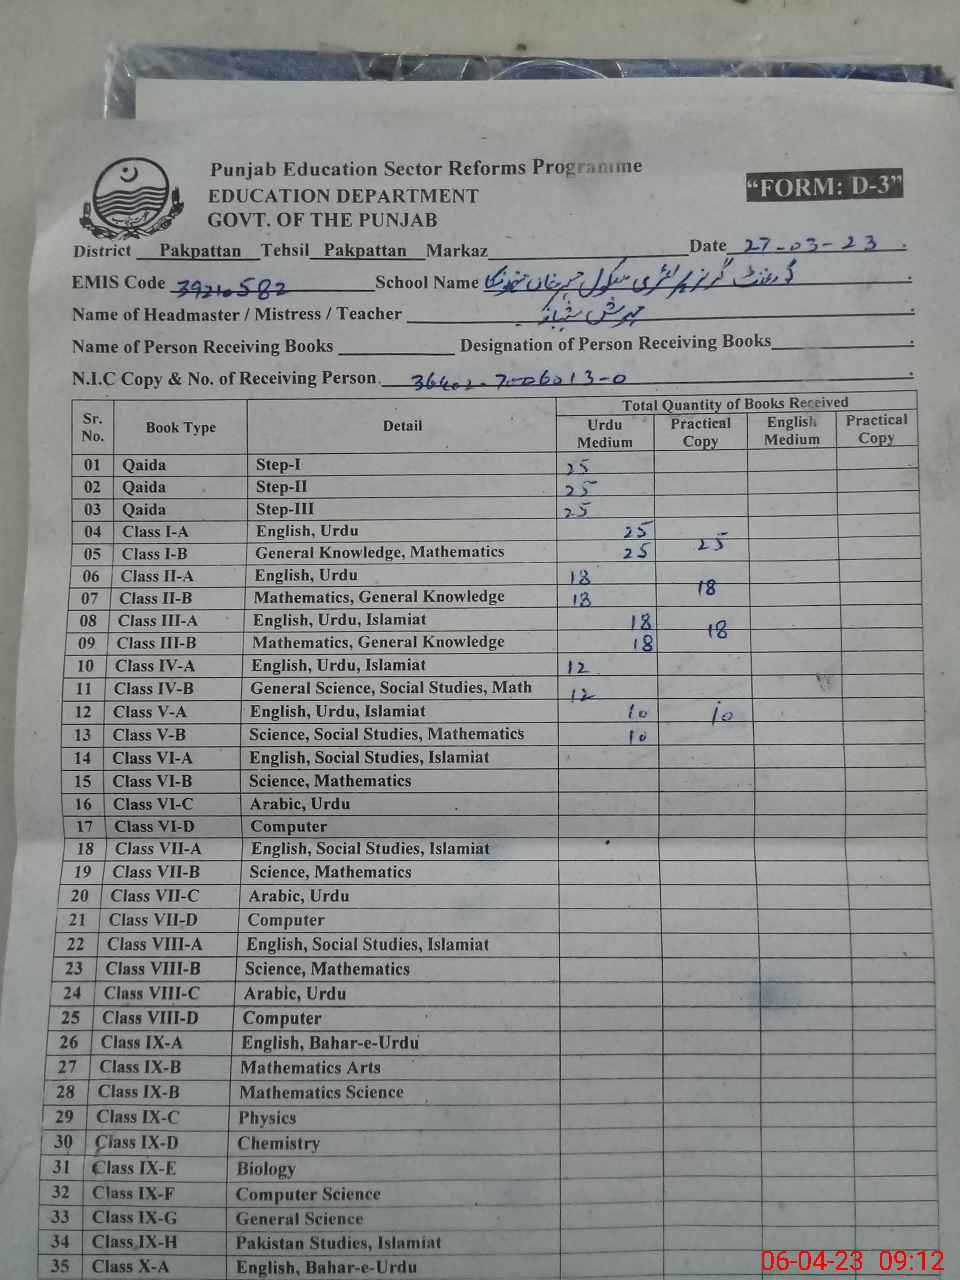 Punjab Education Sector Reforms Programme
EDUCATION DEPARTMENT
GOVT. OF THE PUNJAB
"FORM: D-3"
District Pakpattan Tehsil Pakpattan Markaz Date 27-03-23
EMIS Code 39210582 School Name گورنمنٹ گرلز پرائمری سکول
Name of Headmaster / Mistress / Teacher مہرش شہباز
Name of Person Receiving Books Designation of Person Receiving Books
N.I.C Copy & No. of Receiving Person 36402-7-06013-0
Total Quantity of Books Received
Sr. No. Book Type Detail Urdu Medium Practical Copy English Medium Practical Copy
01 Qaida Step-I 25
02 Qaida Step-II 25
03 Qaida Step-III 25
04 Class I-A English, Urdu 25 25
05 Class I-B General Knowledge, Mathematics 25
06 Class II-A English, Urdu 18
07 Class II-B Mathematics, General Knowledge 18 18
08 Class III-A English, Urdu, Islamiat 18 18
09 Class III-B Mathematics, General Knowledge 18
10 Class IV-A English, Urdu, Islamiat 12
11 Class IV-B General Science, Social Studies, Math 12
12 Class V-A English, Urdu, Islamiat 10 10
13 Class V-B Science, Social Studies, Mathematics 10
14 Class VI-A English, Social Studies, Islamiat
15 Class VI-B Science, Mathematics
16 Class VI-C Arabic, Urdu
17 Class VI-D Computer
18 Class VII-A English, Social Studies, Islamiat
19 Class VII-B Science, Mathematics
20 Class VII-C Arabic, Urdu
21 Class VII-D Computer
22 Class VIII-A English, Social Studies, Islamiat
23 Class VIII-B Science, Mathematics
24 Class VIII-C Arabic, Urdu
25 Class VIII-D Computer
26 Class IX-A English, Bahar-e-Urdu
27 Class IX-B Mathematics Arts
28 Class IX-B Mathematics Science
29 Class IX-C Physics
30 Class IX-D Chemistry
31 Class IX-E Biology
32 Class IX-F Computer Science
33 Class IX-G General Science
34 Class IX-H Pakistan Studies, Islamiat
35 Class X-A English, Bahar-e-Urdu
06-04-23 09:12